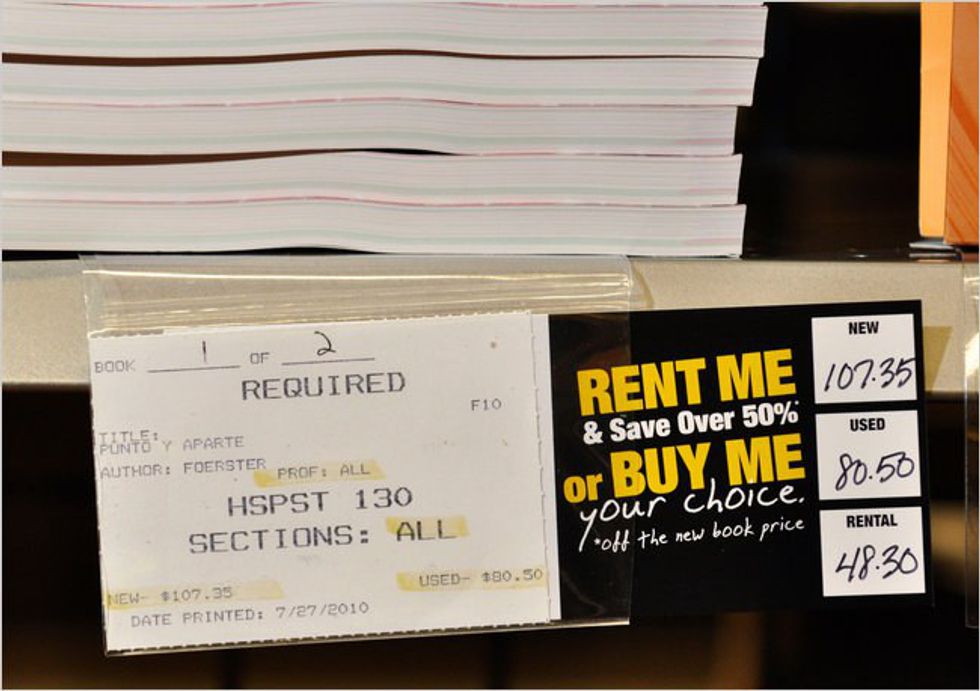 BOOK 1 OF 2
REQUIRED
F10
TITLE:
PUNTO Y APARTE
AUTHOR: FOERSTER
PROF: ALL
HSPST 130
SECTIONS: ALL
USED- $80.50
NEW- $107.35
DATE PRINTED: 7/27/2010
RENT ME
& Save Over 50%*
or BUY ME
your choice.
*off the new book price
NEW
107.35
USED
80.50
RENTAL
48.30